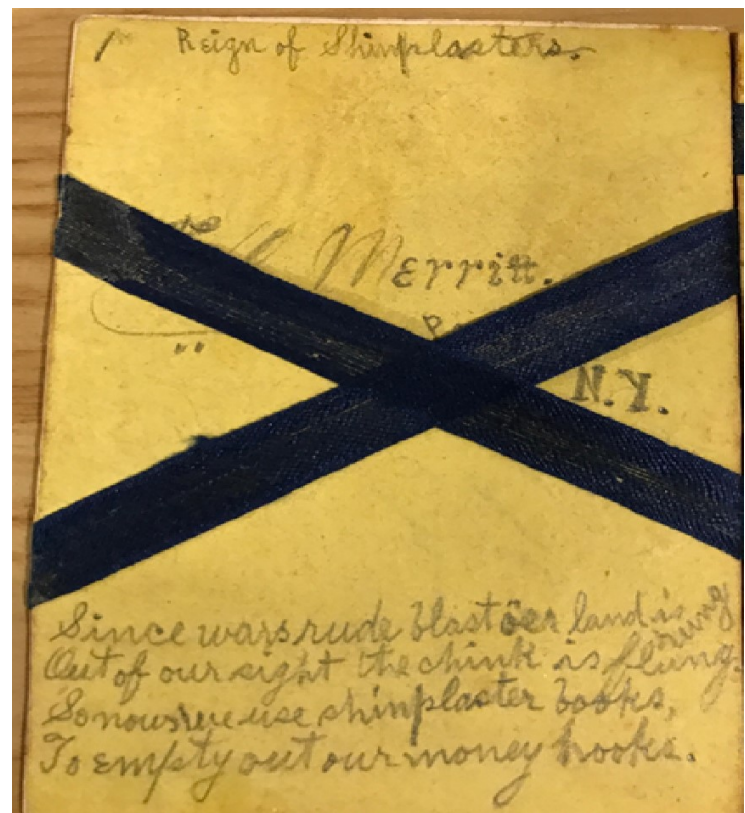 Reign of Shinplasters.
Merritt.
K.N.
Since wars rude blast öer land is
rung
Out of our sight the chink is flung.
So now we use shinplaster books,
To empty out our money hooks.